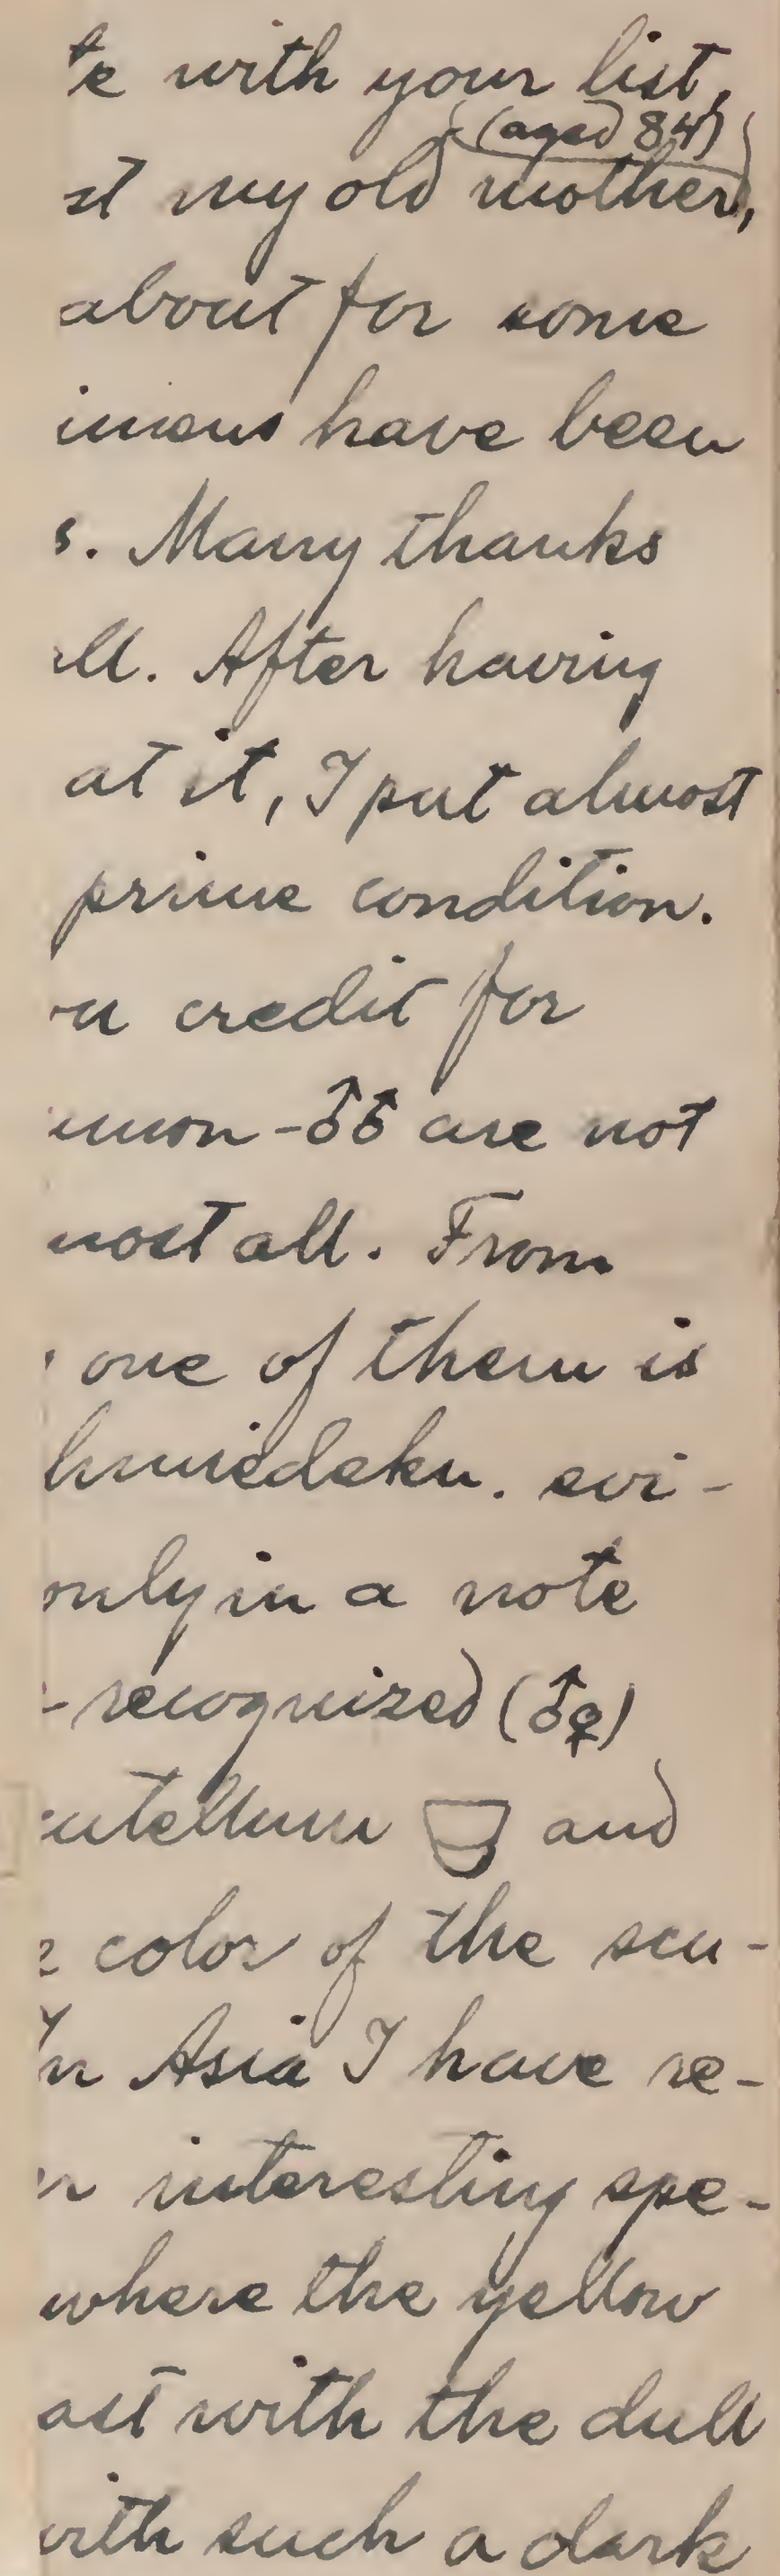 te with your list,
(aged 84)
st my old mother,
about for some
imens have been
s. Many thanks
ll. After having
at it, I put almost
prime condition.
u credit for
mmon - ♂♂ are not
most all. From
one of them is
hmiedekn. evi-
only in a note
- recognized (♂♀)
cutellum and
e color of the scu-
In Asia I have re-
r interesting spe-
where the yellow
ast with the dull
with such a dark